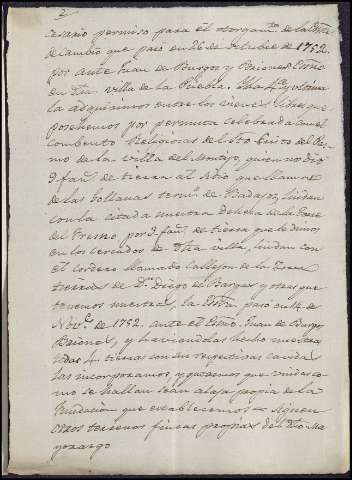 2
cesario permiso para el otorgam.to de la Escr.a
de cambio que pasó en 26 de Octubre de 1752.
por ante Juan de Burgos y Baiones Essno
en dha villa de la Puebla. Y la 4.a y ultima
la adquirimos entre los vienes libres que
posehemos por permuta celebrada con el
combento Religiosas del Sto Cristo del Pas-
mo de la villa del Montijo, quien nos dió
9 fan.s de tierra al sitio que llaman
de las hollanas term.o de Badajoz lindan
con la citada nuestra dehesa de la Torre
del Fresno por 9 fan.s de tierra que le dimos
en los cercados de dha villa, lindan con
el cordero llamado Callejon de la
tierras de D.n Diego de Bargas y otras que
tenemos nuestras, la Escr.a pasó en 14 de
Nov.e de 1752. ante el Essno. Juan de Burgos
Baiones, y haviendolas hecho nuestras
todas 4 tierras con sus respectivas cavida
las incorporamos, y queremos que unidas co-
mo se hallan sean alaja propia de la
Fundacion que establecemos = Siguen
otros terrenos fincas propias del dho Ma-
yorazgo